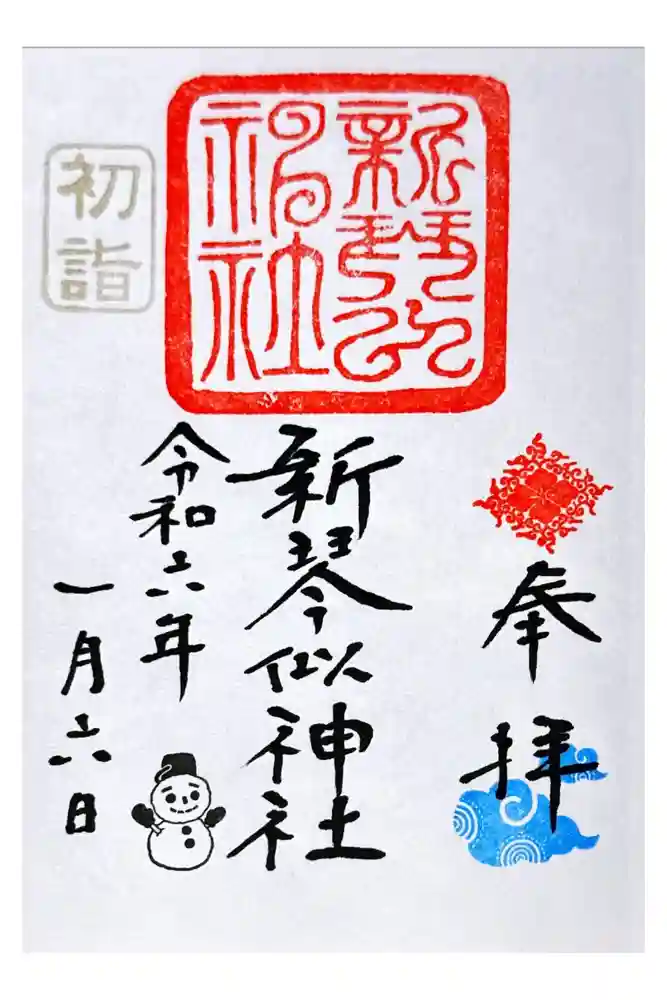 奉拝
新琴似神社
新琴似
神社
令和六年
一月六日
初詣